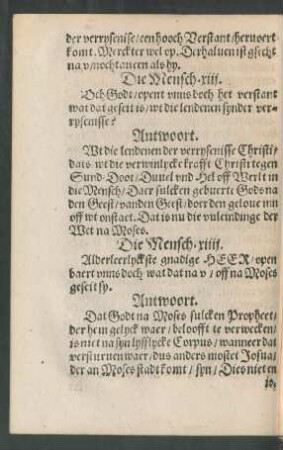 der verrysenisse/een hooch Verstant/hervoert
komt. Mercker wel op. Derhaluen ist gsecht
na v/noch tanen als hy.
Die Mensch. xiij.
Och Godt/opent vnns doch het verstant
wat dat geseit is/wt die lendenen synder ver-
rysenisse?
Antwoort.
Wt die lendenen der verrysenisse Christi/
dat is wt die verwinlycke krafft Christi tegen
Sund/Doot/Duuel vnd Hel off Werlt in
die Mensch/Daer sulcken gebuerte Gods na
den Geest/vanden Geest/doer den geloue inn
off wt onstaet. Dat is nu die vuleindinge der
Wet na Moses.
Die Mensch. xiiij.
Alderleerlyckste gnadige HEER/open
baert vnns doch wat dat na v/off na Moses
geseit sy.
Antwoort.
Dat Godt na Moses sulcken Propheet/
der hem gelyck waer/beloofft te verwecken/
is niet na syn lyfflycke Corpus/wanneer dat
verstürnen waer/dus anders mostet Josua/
der an Moses stadt komt/syn/Dies niet en
is,